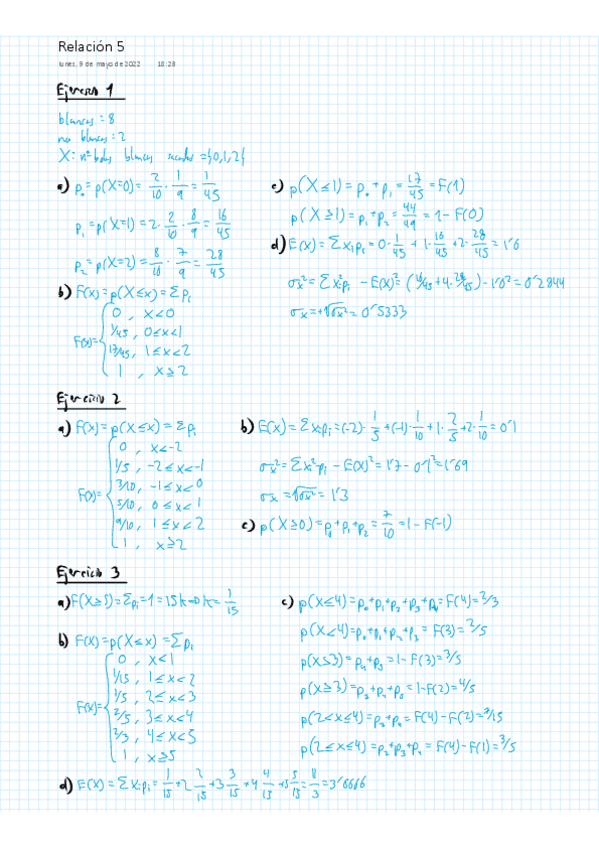 Relación 5
lunes, 9 de mayo de 2022 18:28
Ejercicio 1
blancas = 8
no blancas = 2
X: nº bolas blancas sacadas = {0,1,2}
a) p₀ = p(X=0) = 2/10 · 1/9 = 1/45
p₁ = p(X=1) = 2 · 2/10 · 8/9 = 16/45
p₂ = p(X=2) = 8/10 · 7/9 = 28/45
b) F(x) = p(X≤x) = Σpᵢ
F(x) = { 0 , x<0
1/45 , 0≤x<1
17/45 , 1≤x<2
1 , x≥2
c) p(X≤1) = p₀ + p₁ = 17/45 = F(1)
p(X≥1) = p₁ + p₂ = 44/49 = 1 - F(0)
d) E(x) = Σxᵢpᵢ = 0 · 1/45 + 1 · 16/45 + 2 · 28/45 = 1'6
σx² = Σxᵢ²pᵢ - E(x)² = (16/45 + 4 · 28/45) - 1'6² = 0'2844
σx = +√σx² = 0'5333
Ejercicio 2
a) F(x) = p(X≤x) = Σpᵢ
F(x) = { 0 , x<-2
1/5 , -2≤x<-1
3/10 , -1≤x<0
5/10 , 0≤x<1
9/10 , 1≤x<2
1 , x≥2
b) E(x) = Σxᵢpᵢ = (-2) · 1/5 + (-1) · 1/10 + 1 · 2/5 + 2 · 1/10 = 0'1
σx² = Σxᵢ²pᵢ - E(x)² = 1'7 - 0'1² = 1'69
σx = √σx² = 1'3
c) p(X≥0) = p₀ + p₁ + p₂ = 7/10 = 1 - F(-1)
Ejercicio 3
a) F(X≥5) = Σpᵢ = 1 = 15k → k = 1/15
b) F(x) = p(X≤x) = Σpᵢ
F(x) = { 0 , x<1
1/15 , 1≤x<2
1/5 , 2≤x<3
2/5 , 3≤x<4
2/3 , 4≤x<5
1 , x≥5
c) p(X≤4) = p₀ + p₁ + p₂ + p₃ + p₄ = F(4) = 2/3
p(X<4) = p₀ + p₁ + p₂ + p₃ = F(3) = 2/5
= 1 - F(3) = 3/5
p(X≥3) = p₃ + p₄ + p₅ = 1 - F(2) = 4/5
p(2<x≤4) = p₃ + p₄ = F(4) - F(2) = 7/15
p(2≤x≤4) = p₂ + p₃ + p₄ = F(4) - F(1) = 3/5
d) E(X) = Σxᵢpᵢ = 1/15 + 2 2/15 + 3 3/15 + 4 4/15 + 5 5/15 = = 3'6666